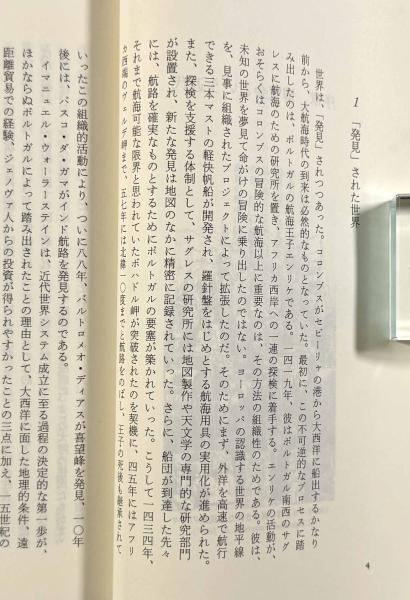 1 「発見」された世界
世界は、「発見」されつつあった。コロンブスがセビーリャの港から大西洋に船出するかなり
前から、大航海時代の到来は必然的なものとなっていた。最初に、この不可逆的なプロセスに踏
み出したのは、ポルトガルの航海王子エンリケである。一四一九年、彼はポルトガル南西のサグ
レスに航海のための研究所を置き、アフリカ西岸への一連の探検に着手する。エンリケの活動が、
おそらくはコロンブスの冒険的な航海以上に重要なのは、その方法の組織性のためである。彼は、
未知の世界を夢見て命がけの冒険に乗り出したのではない。ヨーロッパの認識する世界の地平線
を、見事に組織されたプロジェクトによって拡張したのだ。そのためにまず、外洋を高速で航行
できる三本マストの軽快帆船が開発され、羅針盤をはじめとする航海用具の実用化が進められた。
また、探検を支援する体制として、サグレスの研究所には地図製作や天文学の専門的な研究部門
が設置され、新たな発見は地図のなかに精密に記録されていった。さらに、船団が到達した先々
には、航路を確実なものとするためにポルトガルの要塞が築かれていった。こうして一四三四年、
それまで航海可能な限界と思われていたボハドル岬が突破されたのを契機に、四五年にはアフリ
カ西端のヴェルデ岬まで、五七年には北緯一〇度までと航路をのばし、王子の死後も継承されて
いったこの組織的活動により、ついに八八年、バルトロメオ・ディアスが喜望峰を発見、一〇年
後には、バスコ・ダ・ガマがインド航路を発見するのである。
イマニュエル・ウォーラーステインは、近代世界システム成立に至る過程の決定的な第一歩が、
ほかならぬポルトガルによって踏み出されたことの理由として、大西洋に面した地理的条件、遠
距離貿易での経験、ジェノヴァ人からの投資が得られやすかったことの三点に加え、一五世紀の
4